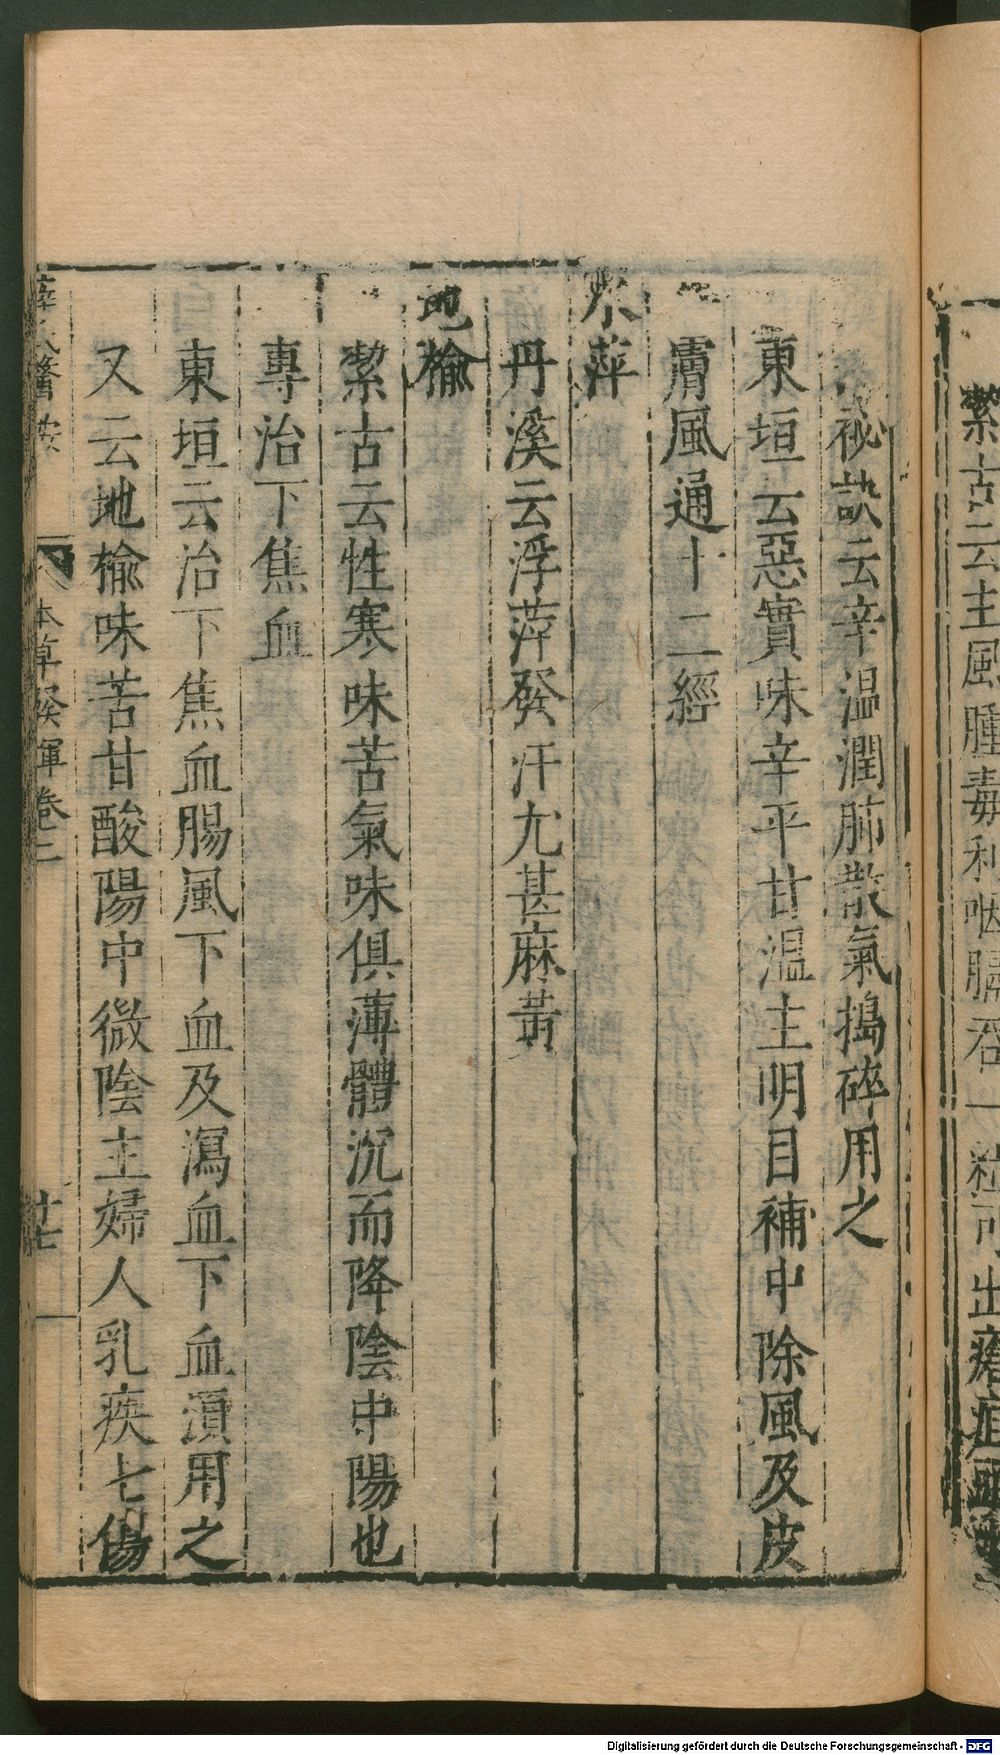 絜古云主風腫毒利咽膈吞一粒可出瘡疽頭
祕訣云辛温潤肺散氣搗碎用之
東垣云惡實味辛平甘温主明目補中除風及皮
膚風通十二經
水萍
丹溪云浮萍發汗尤甚麻黃
地榆
絜古云性寒味苦氣味俱薄體沉而降陰中陽也
專治下焦血
東垣云治下焦血腸風下血及瀉血下血須用之
又云地榆味苦甘酸陽中微陰主婦人乳疾七傷
薛氏醫按 本草發揮卷二 十七
Digitalisierung gefördert durch die Deutsche Forschungsgemeinschaft - DFG